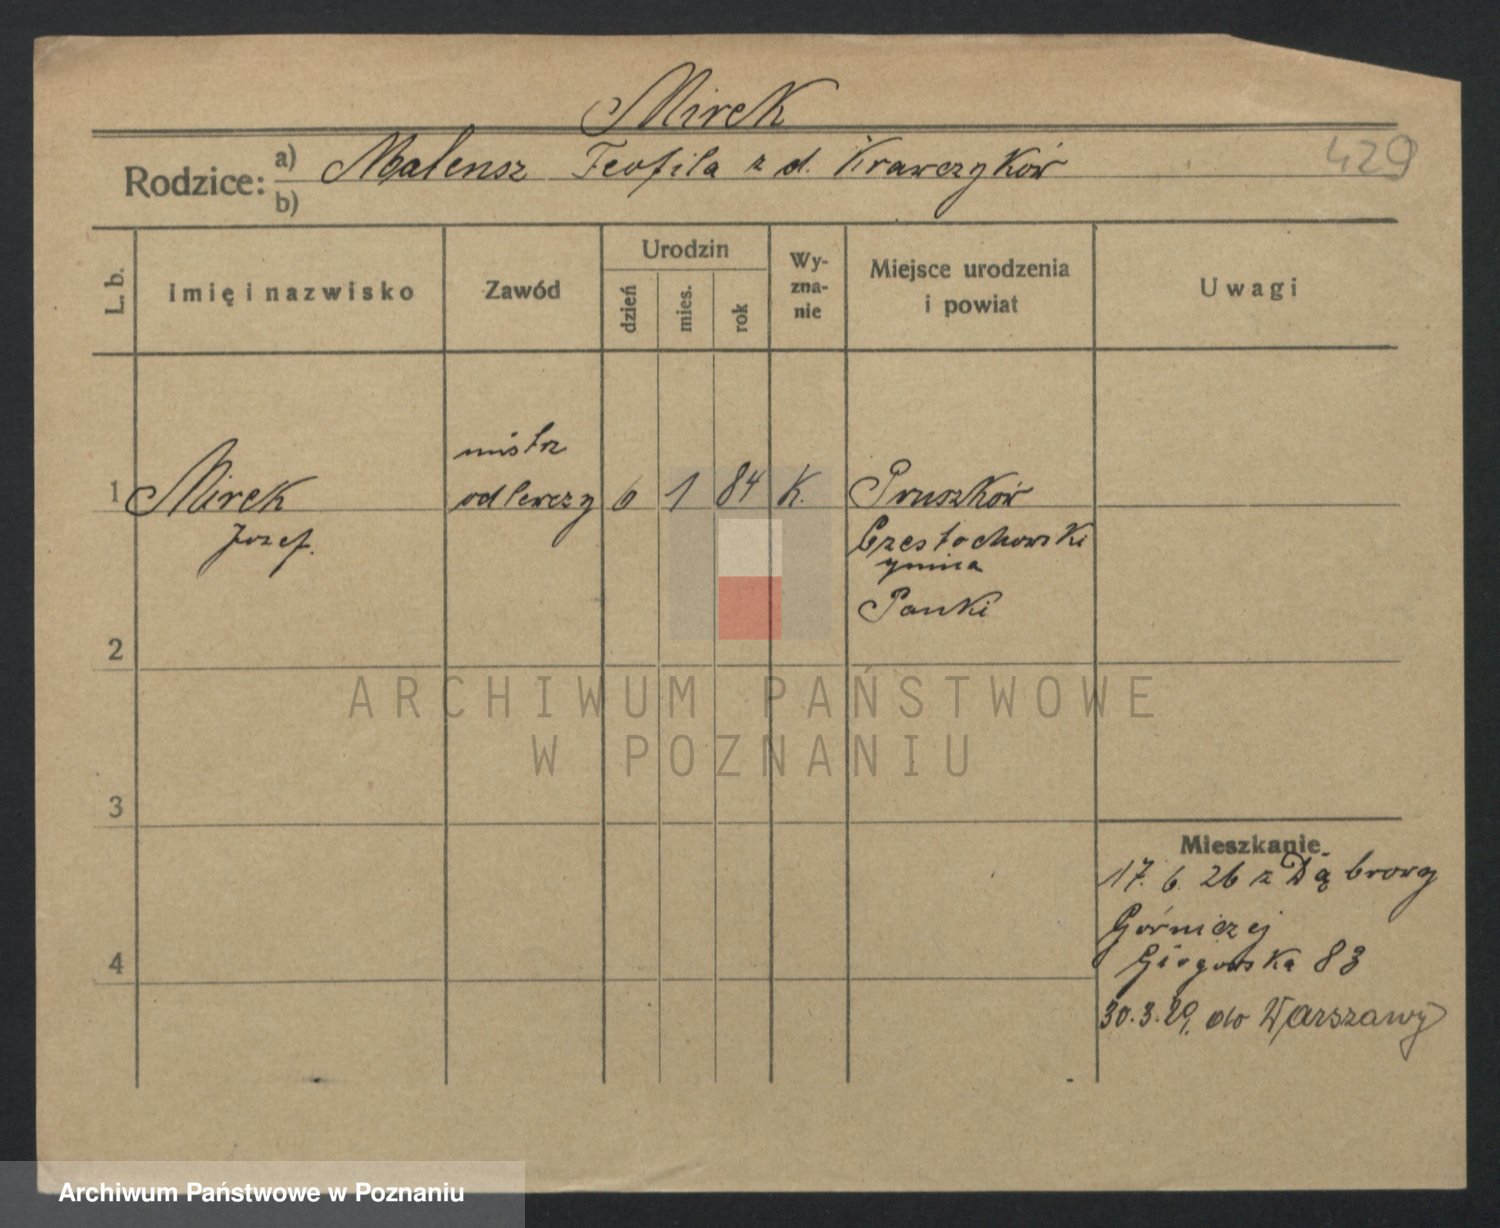 Mirek
429
Rodzice: a) Malensz Teofila z d. Krawczyków
b)
L. b.
Imię i nazwisko
Zawód
Urodzin
dzień
mies.
rok
Wy-
zna-
nie
Miejsce urodzenia
i powiat
Uwagi
mistrz
1 Mirek odlewczy 6 1 84 K. Pruszków
Józef.
Częstochowski
gmina
Panki
2
ARCHIWUM PAŃSTWOWE
W POZNANIU
3
Mieszkanie
17. 6. 26 z Dąbrowy
Górniczej
4
83
30.3.29. do Warszawy
Archiwum Państwowe w Poznaniu